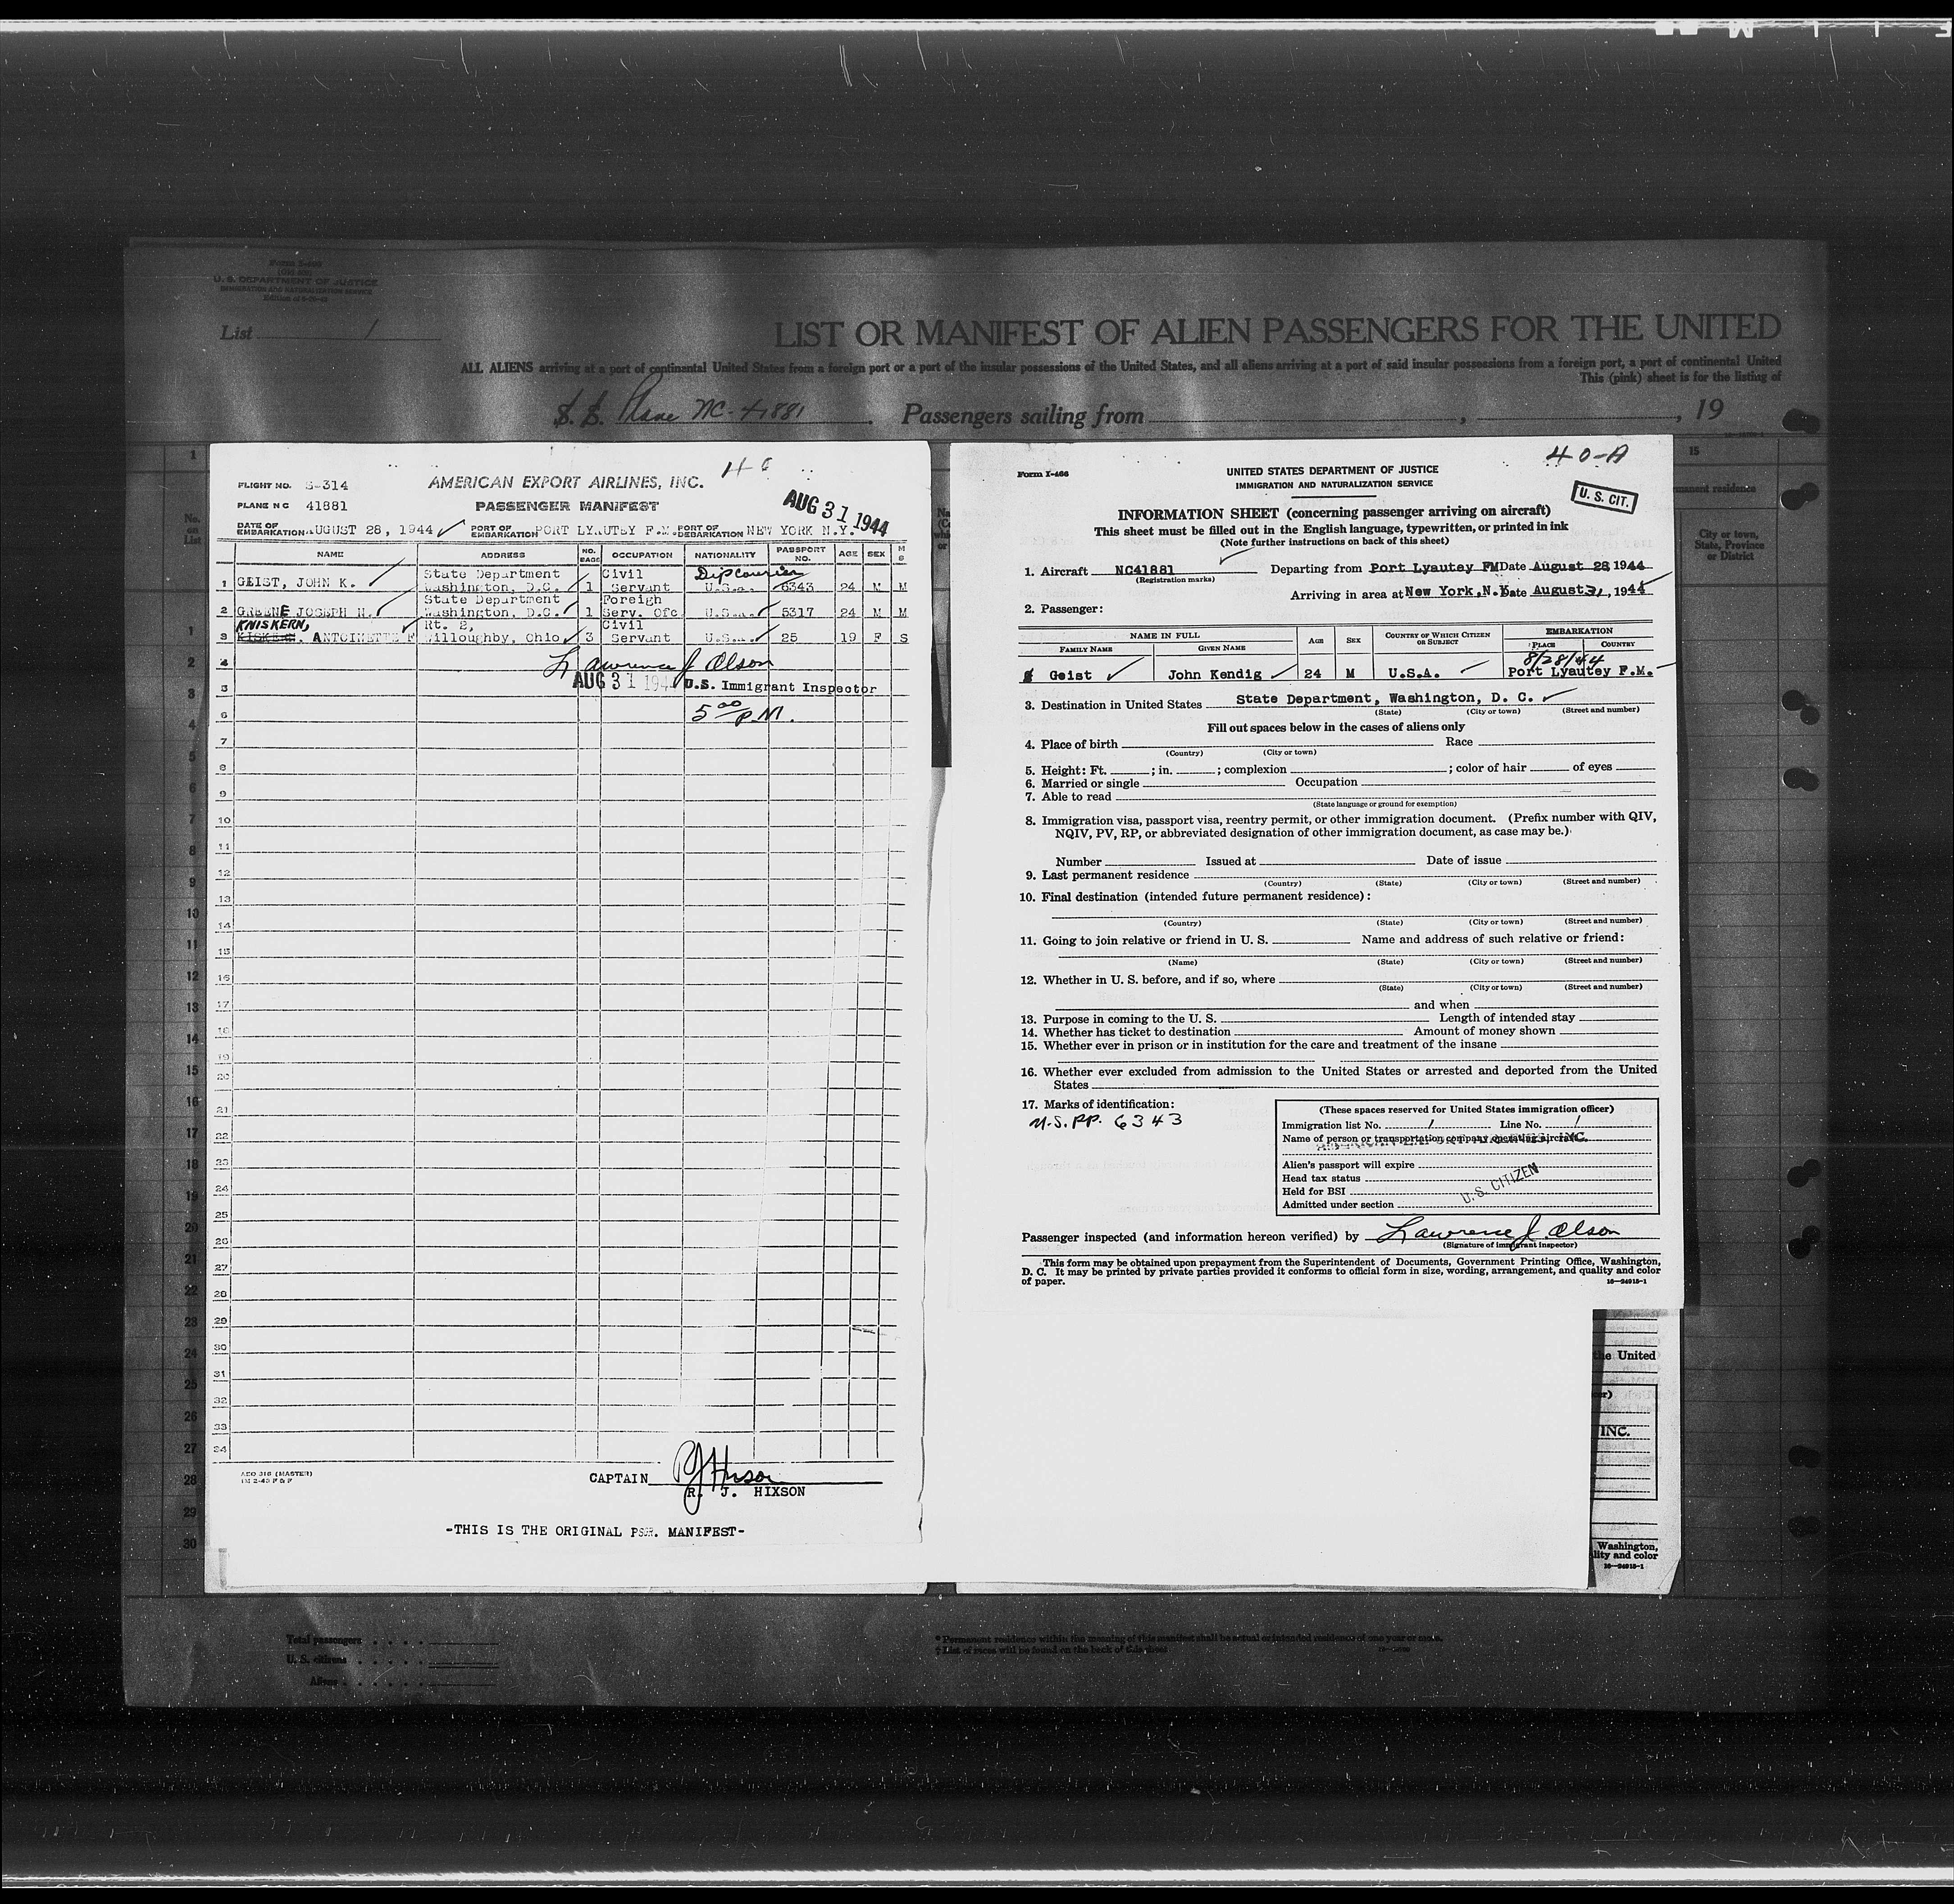 Form I-466
U. S. DEPARTMENT OF JUSTICE
IMMIGRATION AND NATURALIZATION SERVICE
List 1
LIST OR MANIFEST OF ALIEN PASSENGERS FOR THE UNITED
ALL ALIENS arriving at a port of continental United States from a foreign port or a port of the insular possessions of the United States, and all aliens arriving at a port of said insular possessions from a foreign port, a port of continental United
This (pink) sheet is for the listing of
S. S. Plane NC-41881. Passengers sailing from , , 19
FLIGHT NO. S-314 AMERICAN EXPORT AIRLINES, INC.
PLANE N C 41881 PASSENGER MANIFEST AUG 31 1944
DATE OF EMBARKATION AUGUST 28, 1944 PORT OF EMBARKATION PORT LYAUTEY F.M. PORT OF DEBARKATION NEW YORK N.Y.
NAME ADDRESS NO. BAGS OCCUPATION NATIONALITY PASSPORT NO. AGE SEX M S
1 GEIST, JOHN K. State Department Washington, D.C. 1 Civil Servant Dip courier U.S.A. 6343 24 M M
2 GREENE JOSEPH N. State Department Washington, D.C. 1 Foreign Serv. Ofc U.S.A. 5317 24 M M
KNISKERN,
3 ANTOINETTE F Rt. 2, Willoughby, Ohio 3 Civil Servant U.S.A. 25 19 F S
4 Lawrence J Olson
5 AUG 31 1944 U.S. Immigrant Inspector
6 5 00 P.M.
7
8
9
10
11
12
13
14
15
16
17
18
19
20
21
22
23
24
25
26
27
28
29
30
31
32
33
34
CAPTAIN RJ Hixson
R. J. HIXSON
-THIS IS THE ORIGINAL PSGR. MANIFEST-
40-A
Form I-466
UNITED STATES DEPARTMENT OF JUSTICE
IMMIGRATION AND NATURALIZATION SERVICE
U. S. CIT.
INFORMATION SHEET (concerning passenger arriving on aircraft)
This sheet must be filled out in the English language, typewritten, or printed in ink
(Note further instructions on back of this sheet)
1. Aircraft NC41881 Departing from Port Lyautey FM Date August 28, 1944
(Registration marks)
Arriving in area at New York, N.Y. Date August 31, 1944
2. Passenger:
NAME IN FULL AGE SEX COUNTRY OF WHICH CITIZEN OR SUBJECT EMBARKATION
FAMILY NAME GIVEN NAME PLACE COUNTRY
8/28/44
Geist John Kendig 24 M U.S.A. Port Lyautey F.M.
3. Destination in United States State Department, Washington, D. C.
(State) (City or town) (Street and number)
Fill out spaces below in the cases of aliens only
4. Place of birth Race
(Country) (City or town)
5. Height: Ft. ; in. ; complexion ; color of hair of eyes
6. Married or single Occupation
7. Able to read
(State language or ground for exemption)
8. Immigration visa, passport visa, reentry permit, or other immigration document. (Prefix number with QIV,
NQIV, PV, RP, or abbreviated designation of other immigration document, as case may be.)
Number Issued at Date of issue
9. Last permanent residence
(Country) (State) (City or town) (Street and number)
10. Final destination (intended future permanent residence):
(Country) (State) (City or town) (Street and number)
11. Going to join relative or friend in U. S. Name and address of such relative or friend:
(Name) (State) (City or town) (Street and number)
12. Whether in U. S. before, and if so, where
(State) (City or town) (Street and number)
and when
13. Purpose in coming to the U. S. Length of intended stay
14. Whether has ticket to destination Amount of money shown
15. Whether ever in prison or in institution for the care and treatment of the insane
16. Whether ever excluded from admission to the United States or arrested and deported from the United
States
17. Marks of identification:
U.S. PP. 6343
(These spaces reserved for United States immigration officer)
Immigration list No. 1 Line No. 1
Name of person or transportation company operating aircraft
INC.
Alien's passport will expire
Head tax status
Held for BSI
Admitted under section
U. S. CITIZEN
Passenger inspected (and information hereon verified) by Lawrence J. Olson
(Signature of immigrant inspector)
This form may be obtained upon prepayment from the Superintendent of Documents, Government Printing Office, Washington,
D. C. It may be printed by private parties provided it conforms to official form in size, wording, arrangement, and quality and color
of paper.
16—24915-1
the United
INC.
Washington,
lity and color
16—24915-1
15
City or town,
State, Province
or District
Total passengers
U. S. citizens
Aliens
* Permanent residence within the meaning of this manifest shall be actual or intended residence of one year or more.
† List of races will be found on the back of this sheet